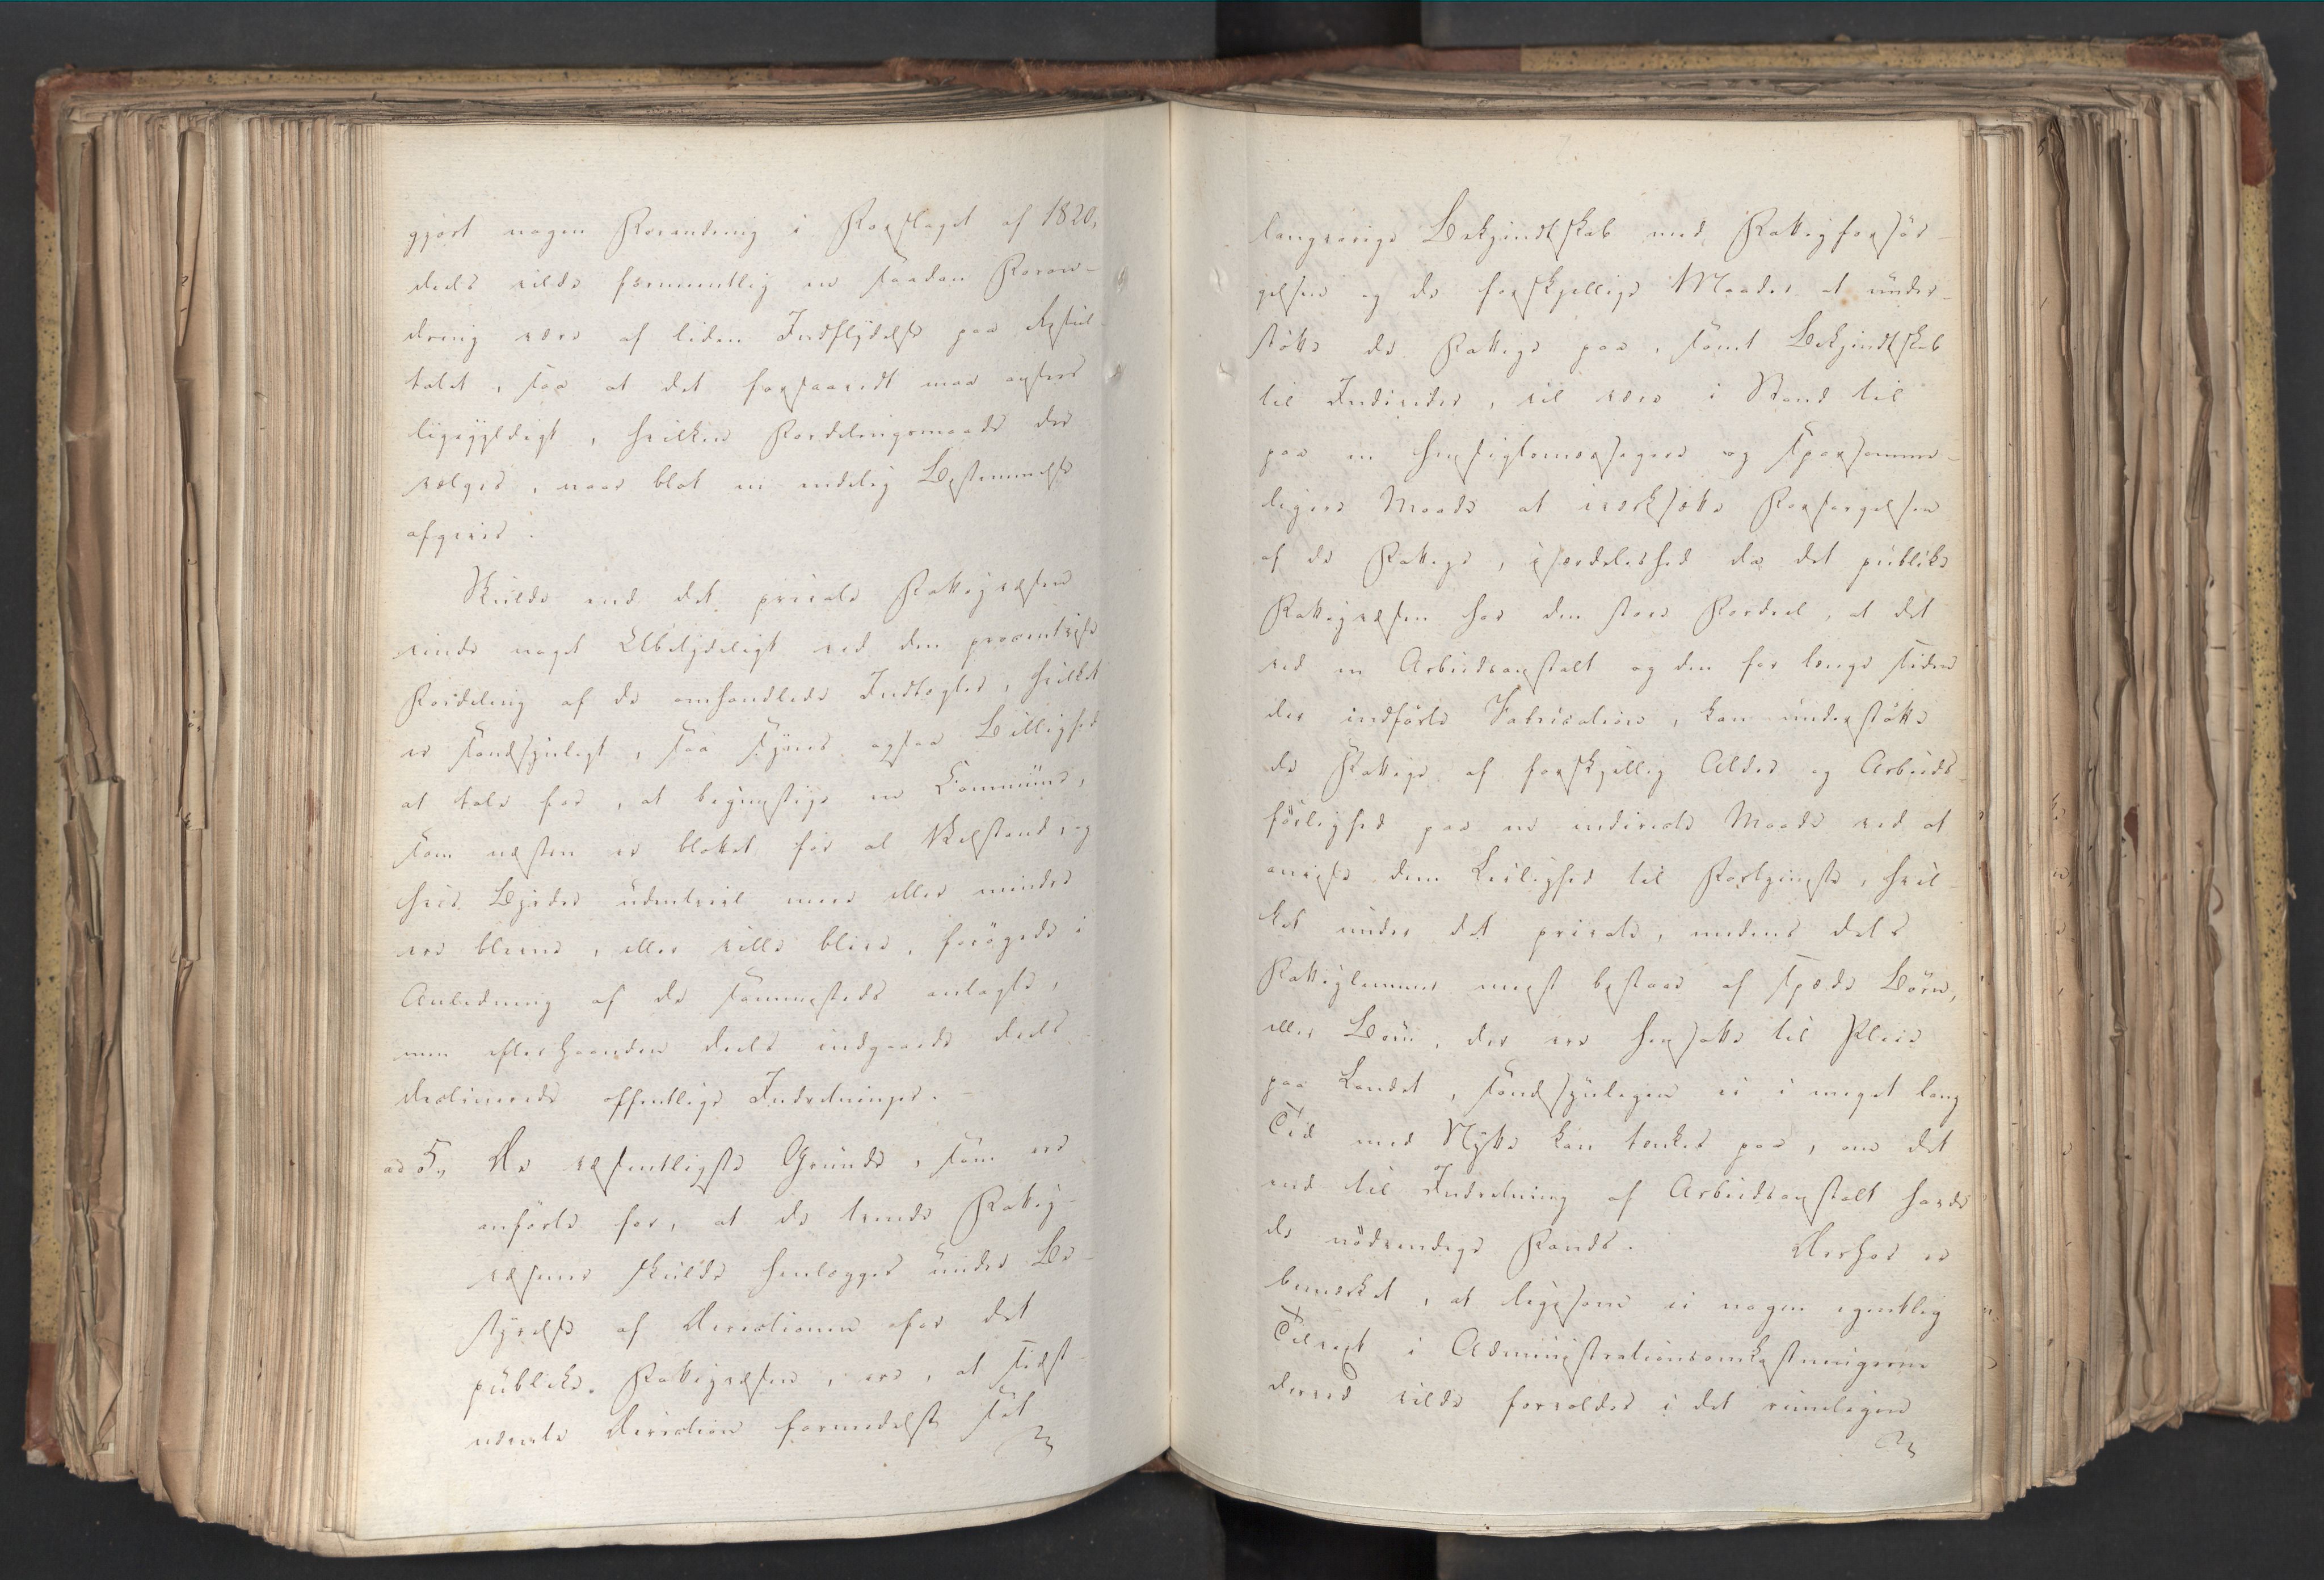 gjort nogen Forandring i Forslaget af 1820,
deels vilde formeentlig en saadan Foran-
dring være af liden Indflydelse paa Resul-
tatet, saa at det forsaavidt maa ansees
ligegyldigt, hvilken Fordelingsmaade der
vælges, naar blot en endelig Bestemmelse
afgives.
Skulde end det private Fattigvæsen
vinde noget Ubetydeligt ved den procentvise
Fordeling af de omhandlede Indtægter, hvilket
er sandsynligt, saa synes ogsaa Billighed
at tale for, at begunstige en Commune,
som næsten er blottet for al Velstand, og
hvis Byrder udentvivl meer eller mindre
ere blevne, eller ville blive, forøgede i
Anledning af de sammesteds anlagte,
men efterhaanden deels indgaaede deels
declinerede offentlige Indretninger. -
ad 5, De væsentligste Grunde, som ere
anførte for, at de tvende Fattig-
væsener skulde henlægges under Be-
styrelse af Directionen for det
publike Fattigvæsen, ere, at sidst-
nævnte Direction formedelst sit
langvarige Bekjendtskab med Fattigforsør-
gelsen og de forskjellige Maader at under-
støtte de Fattige paa, samt Bekjendtskab
til Individer, vil være i Stand til
paa en hensigtsmæssigere og sparsomme-
ligere Maade at iværksætte Forsørgelsen
af de Fattige, især­deleshed da det publike
Fattigvæsen har den store Fordeel, at det
ved en Arbeidsanstalt og den for længe siden
der indførte Fabrication, kan understøtte
de Fattige af forskjellig Alder og Arbeids-
førlighed paa en indirecte Maade ved at
anvise dem Leilighed til Fortjeneste, hvil-
ket under det private, medens dets
Fattiglemmer meest bestaae af spæde Børn,
eller Børn, der ere hensatte til Pleie
paa Landet, sandsynligen ei i meget lang
Tid med Nytte kan tænkes paa, om det
end til Indretning af Arbeidsanstalt havde
de nødvendige Fonds. Derhos er
bemærket, at ligesom ei nogen egentlig
Tilvext i Administrationsomkostningerne
derved vilde forvoldes i det rimeligen